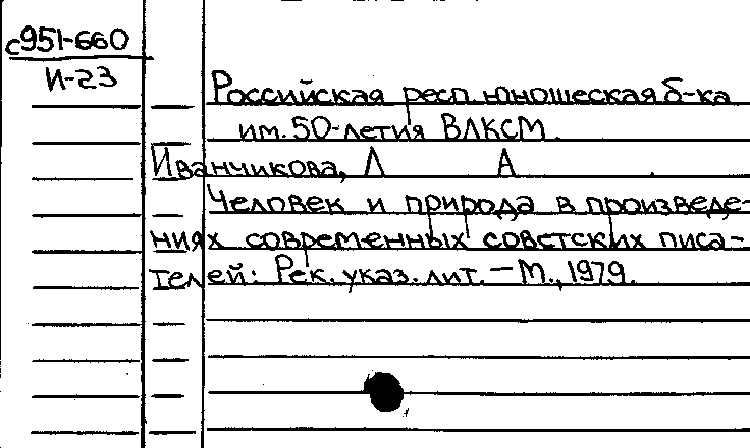 с951-660
И-23
Российская респ. юношеская б-ка
им. 50-летия ВЛКСМ.
Иванчикова, Л А
Человек и природа в произведе-
ниях современных советских писа-
телей: Рек. указ. лит. — М., 1979.